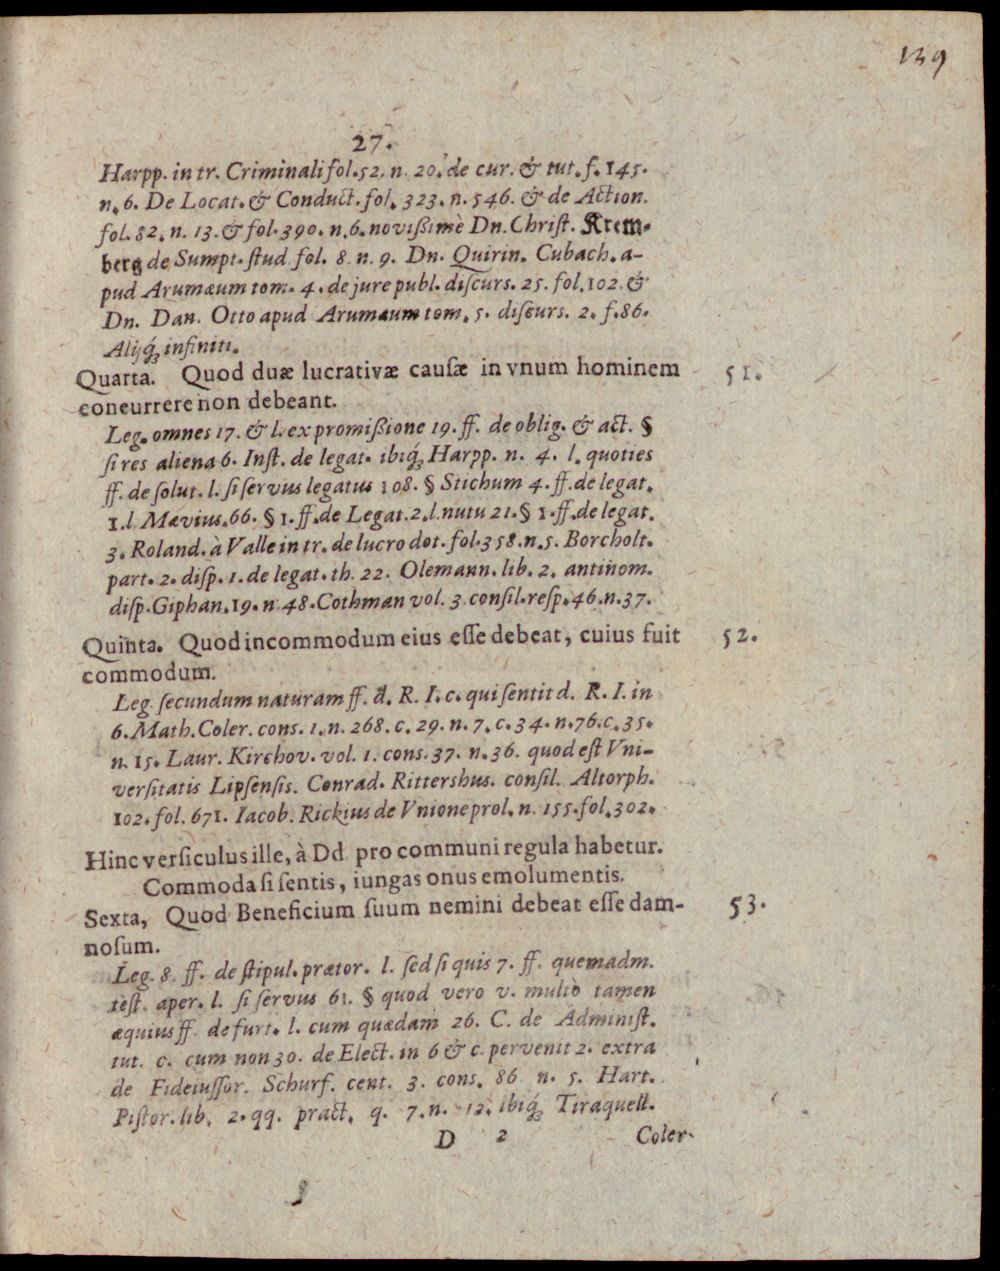 139
27.
Harpp. in tr. Criminali fol. 52. n. 20. de cur. & tut. f. 145.
n. 6. De Locat. & Conduct. fol. 323. n. 546. & de Action.
fol. 82. n. 13. & fol. 390. n. 6. novißimè Dn. Christ. Krem-
berg de Sumpt. stud fol. 8 n. 9. Dn. Quirin. Cubach. a-
pud Arumæum tom. 4. de jure publ. discurs. 25. fol. 102. &
Dn. Dan. Otto apud Arumæum tom. 5. discurs. 2. f. 86.
Alijq́; infiniti.
Quarta. Quod duæ lucrativæ causæ in vnum hominem 51.
concurrere non debeant.
Leg. omnes 17. & l. ex promißione 19. ff. de oblig. & act. §
si res aliena 6. Inst. de legat. ibiq́; Harpp. n. 4. l. quoties
ff. de solut. l. si servus legatus 108. § Stichum 4. ff. de legat.
1. l Mævius. 66. § 1. ff. de Legat. 2. l. nutu 21. § 1. ff. de legat.
3. Roland. à Valle in tr. de lucro dot. fol. 358. n. 5. Borcholt.
part. 2. disp. 1. de legat. th. 22. Olemann. lib. 2. antinom.
disp. Giphan. 19. n 48. Cothman vol. 3. consil. resp. 46. n. 37.
Quinta. Quod incommodum eius esse debeat, cuius fuit 52.
commodum.
Leg. secundum naturam ff. d. R. I. c. qui sentit d. R. I. in
6. Math. Coler. cons. 1. n. 268. c. 29. n. 7. c. 34. n. 76. c. 35.
n. 15. Laur. Kirchov. vol. 1. cons. 37. n. 36. quod est Vni-
versitatis Lipsensis. Conrad. Rittershus. consil. Altorph.
102. fol. 671. Iacob. Rickius de Vnione prol. n. 155. fol. 302.
Hinc versiculus ille, à Dd pro communi regula habetur.
Commoda si sentis, iungas onus emolumentis.
Sexta, Quod Beneficium suum nemini debeat esse dam- 53.
nosum.
Leg. 8. ff. de stipul. prætor. l. sed si quis 7. ff. quemadm.
test. aper. l. si servus 61. § quod vero v. multo tamen
æquius ff. de furt. l. cum quædam 26. C. de Administ.
tut. c. cum non 30. de Elect. in 6 & c. pervenit 2. extra
de Fideiussor. Schurf. cent. 3. cons. 86 n. 5. Hart.
Pistor. lib. 2. qq. pract. q. 7. n. 12. ibiq́; Tiraquell.
D 2 Coler.